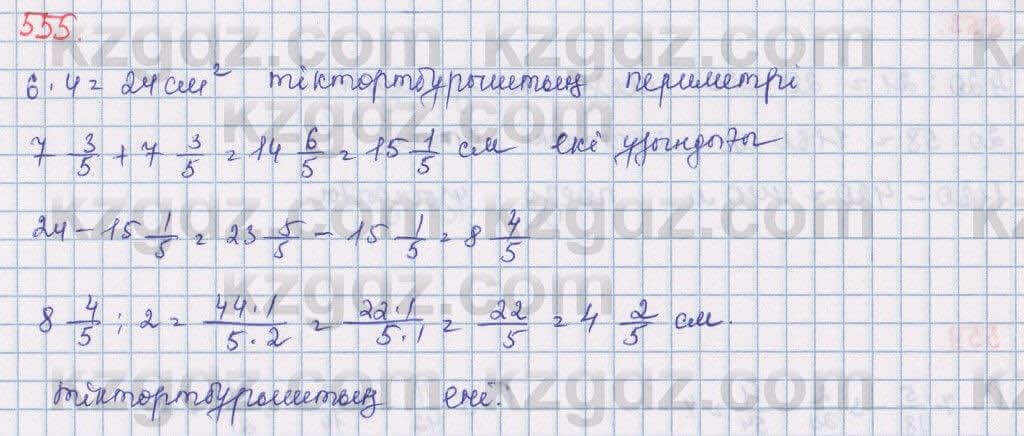 555.
6 · 4 = 24 см² тіктөртбұрыштың периметрі
7 3/5 + 7 3/5 = 14 6/5 = 15 1/5 см екі ұзындығы
24 − 15 1/5 = 23 5/5 − 15 1/5 = 8 4/5
8 4/5 : 2 = 44·1/5·2 = 22·1/5·1 = 22/5 = 4 2/5 см.
тіктөртбұрыштың ені.
kzgdz.com